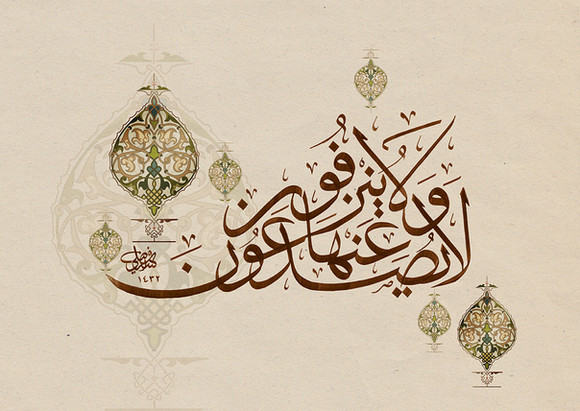 لا يصدعون عنها
ولا ينزفون
١٤٣٢